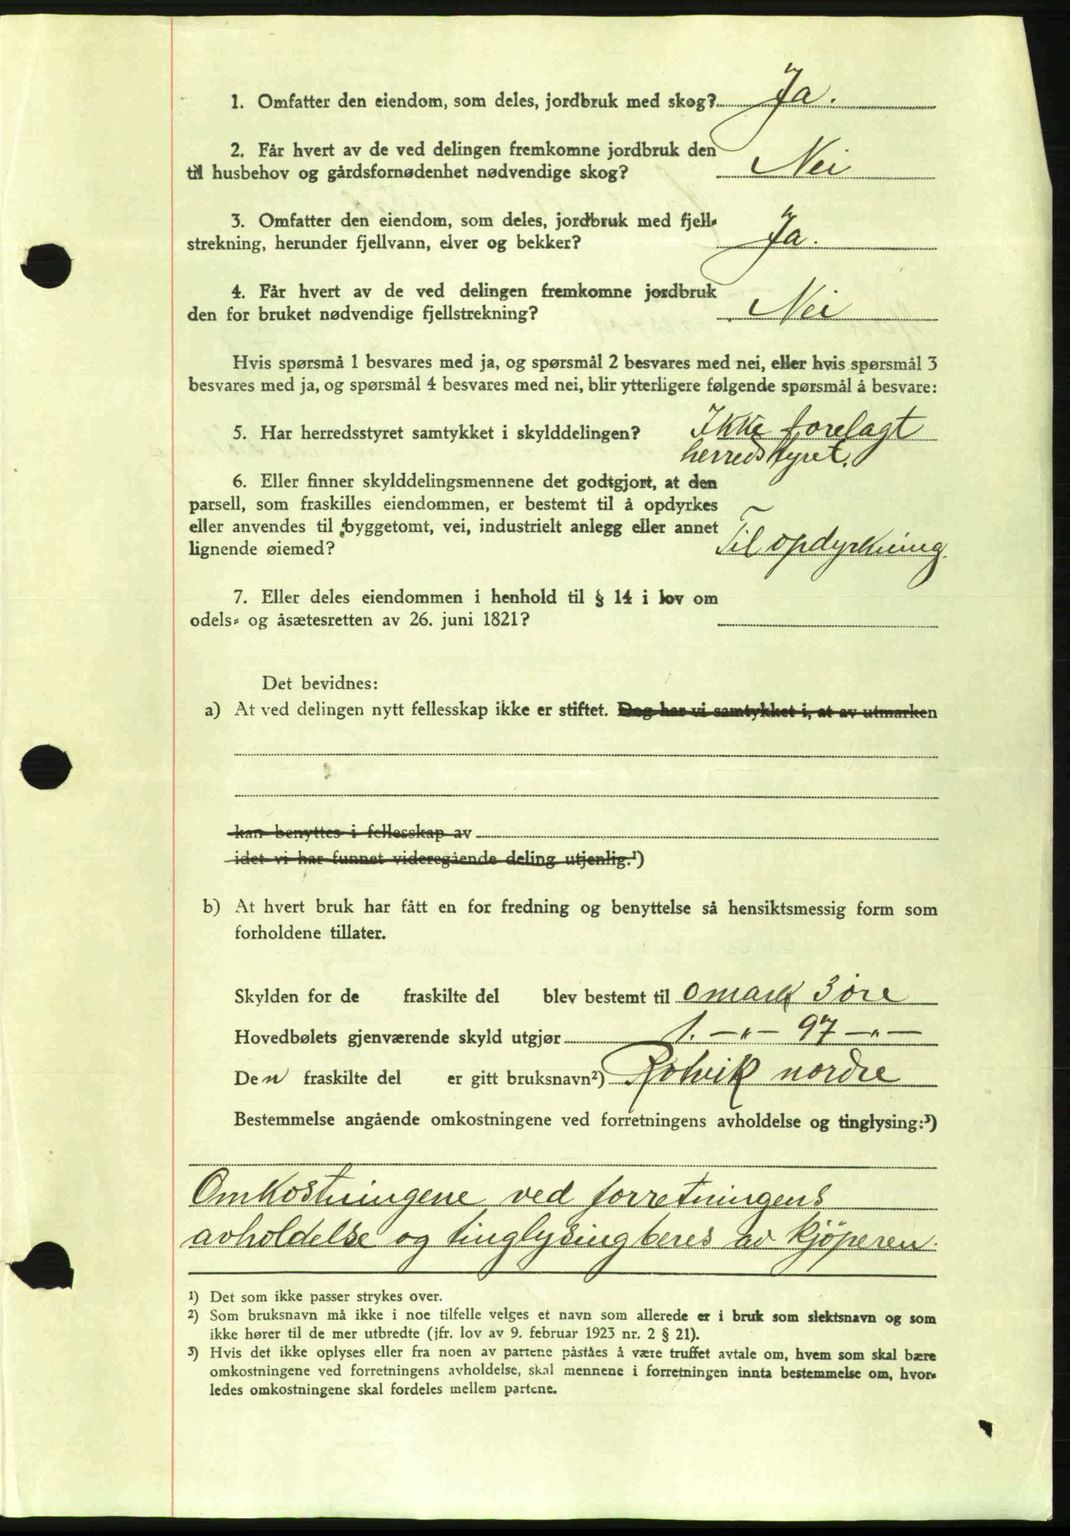 1. Omfatter den eiendom, som deles, jordbruk med skog? Ja.
2. Får hvert av de ved delingen fremkomne jordbruk den
til husbehov og gårdsfornødenhet nødvendige skog? Nei
3. Omfatter den eiendom, som deles, jordbruk med fjell-
strekning, herunder fjellvann, elver og bekker? Ja.
4. Får hvert av de ved delingen fremkomne jordbruk
den for bruket nødvendige fjellstrekning? Nei
Hvis spørsmå 1 besvares med ja, og spørsmål 2 besvares med nei, eller hvis spørsmål 3
besvares med ja, og spørsmål 4 besvares med nei, blir ytterligere følgende spørsmål å besvare:
5. Har herredsstyret samtykket i skylddelingen? Ikke forelagt
herredstyret.
6. Eller finner skylddelingsmennene det godtgjort, at den
parsell, som fraskilles eiendommen, er bestemt til å opdyrkes
eller anvendes til byggetomt, vei, industrielt anlegg eller annet
lignende øiemed? Til opdyrkning.
7. Eller deles eiendommen i henhold til § 14 i lov om
odels- og åsætesretten av 26. juni 1821?
Det bevidnes:
a) At ved delingen nytt fellesskap ikke er stiftet. Dog har vi samtykket i, at av utmarken
kan benyttes i fellesskap av
idet vi har funnet videregående deling utjenlig.¹)
b) At hvert bruk har fått en for fredning og benyttelse så hensiktsmessig form som
forholdene tillater.
Skylden for de fraskilte del blev bestemt til 0 mark 3 øre
Hovedbølets gjenværende skyld utgjør 1. —„— 97 —„—
Den fraskilte del er gitt bruksnavn²) Rotvik nordre
Bestemmelse angående omkostningene ved forretningens avholdelse og tinglysing:³)
Omkostningene ved forretningens
avholdelse og tinglysing beres av kjøperen.
¹) Det som ikke passer strykes over.
²) Som bruksnavn må ikke i noe tilfelle velges et navn som allerede er i bruk som slektsnavn og som
ikke hører til de mer utbredte (jfr. lov av 9. februar 1923 nr. 2 § 21).
³) Hvis det ikke oplyses eller fra noen av partene påståes å være truffet avtale om, hvem som skal bære
omkostningene ved forretningens avholdelse, skal mennene i forretningen innta bestemmelse om, hvor-
ledes omkostningene skal fordeles mellem partene.